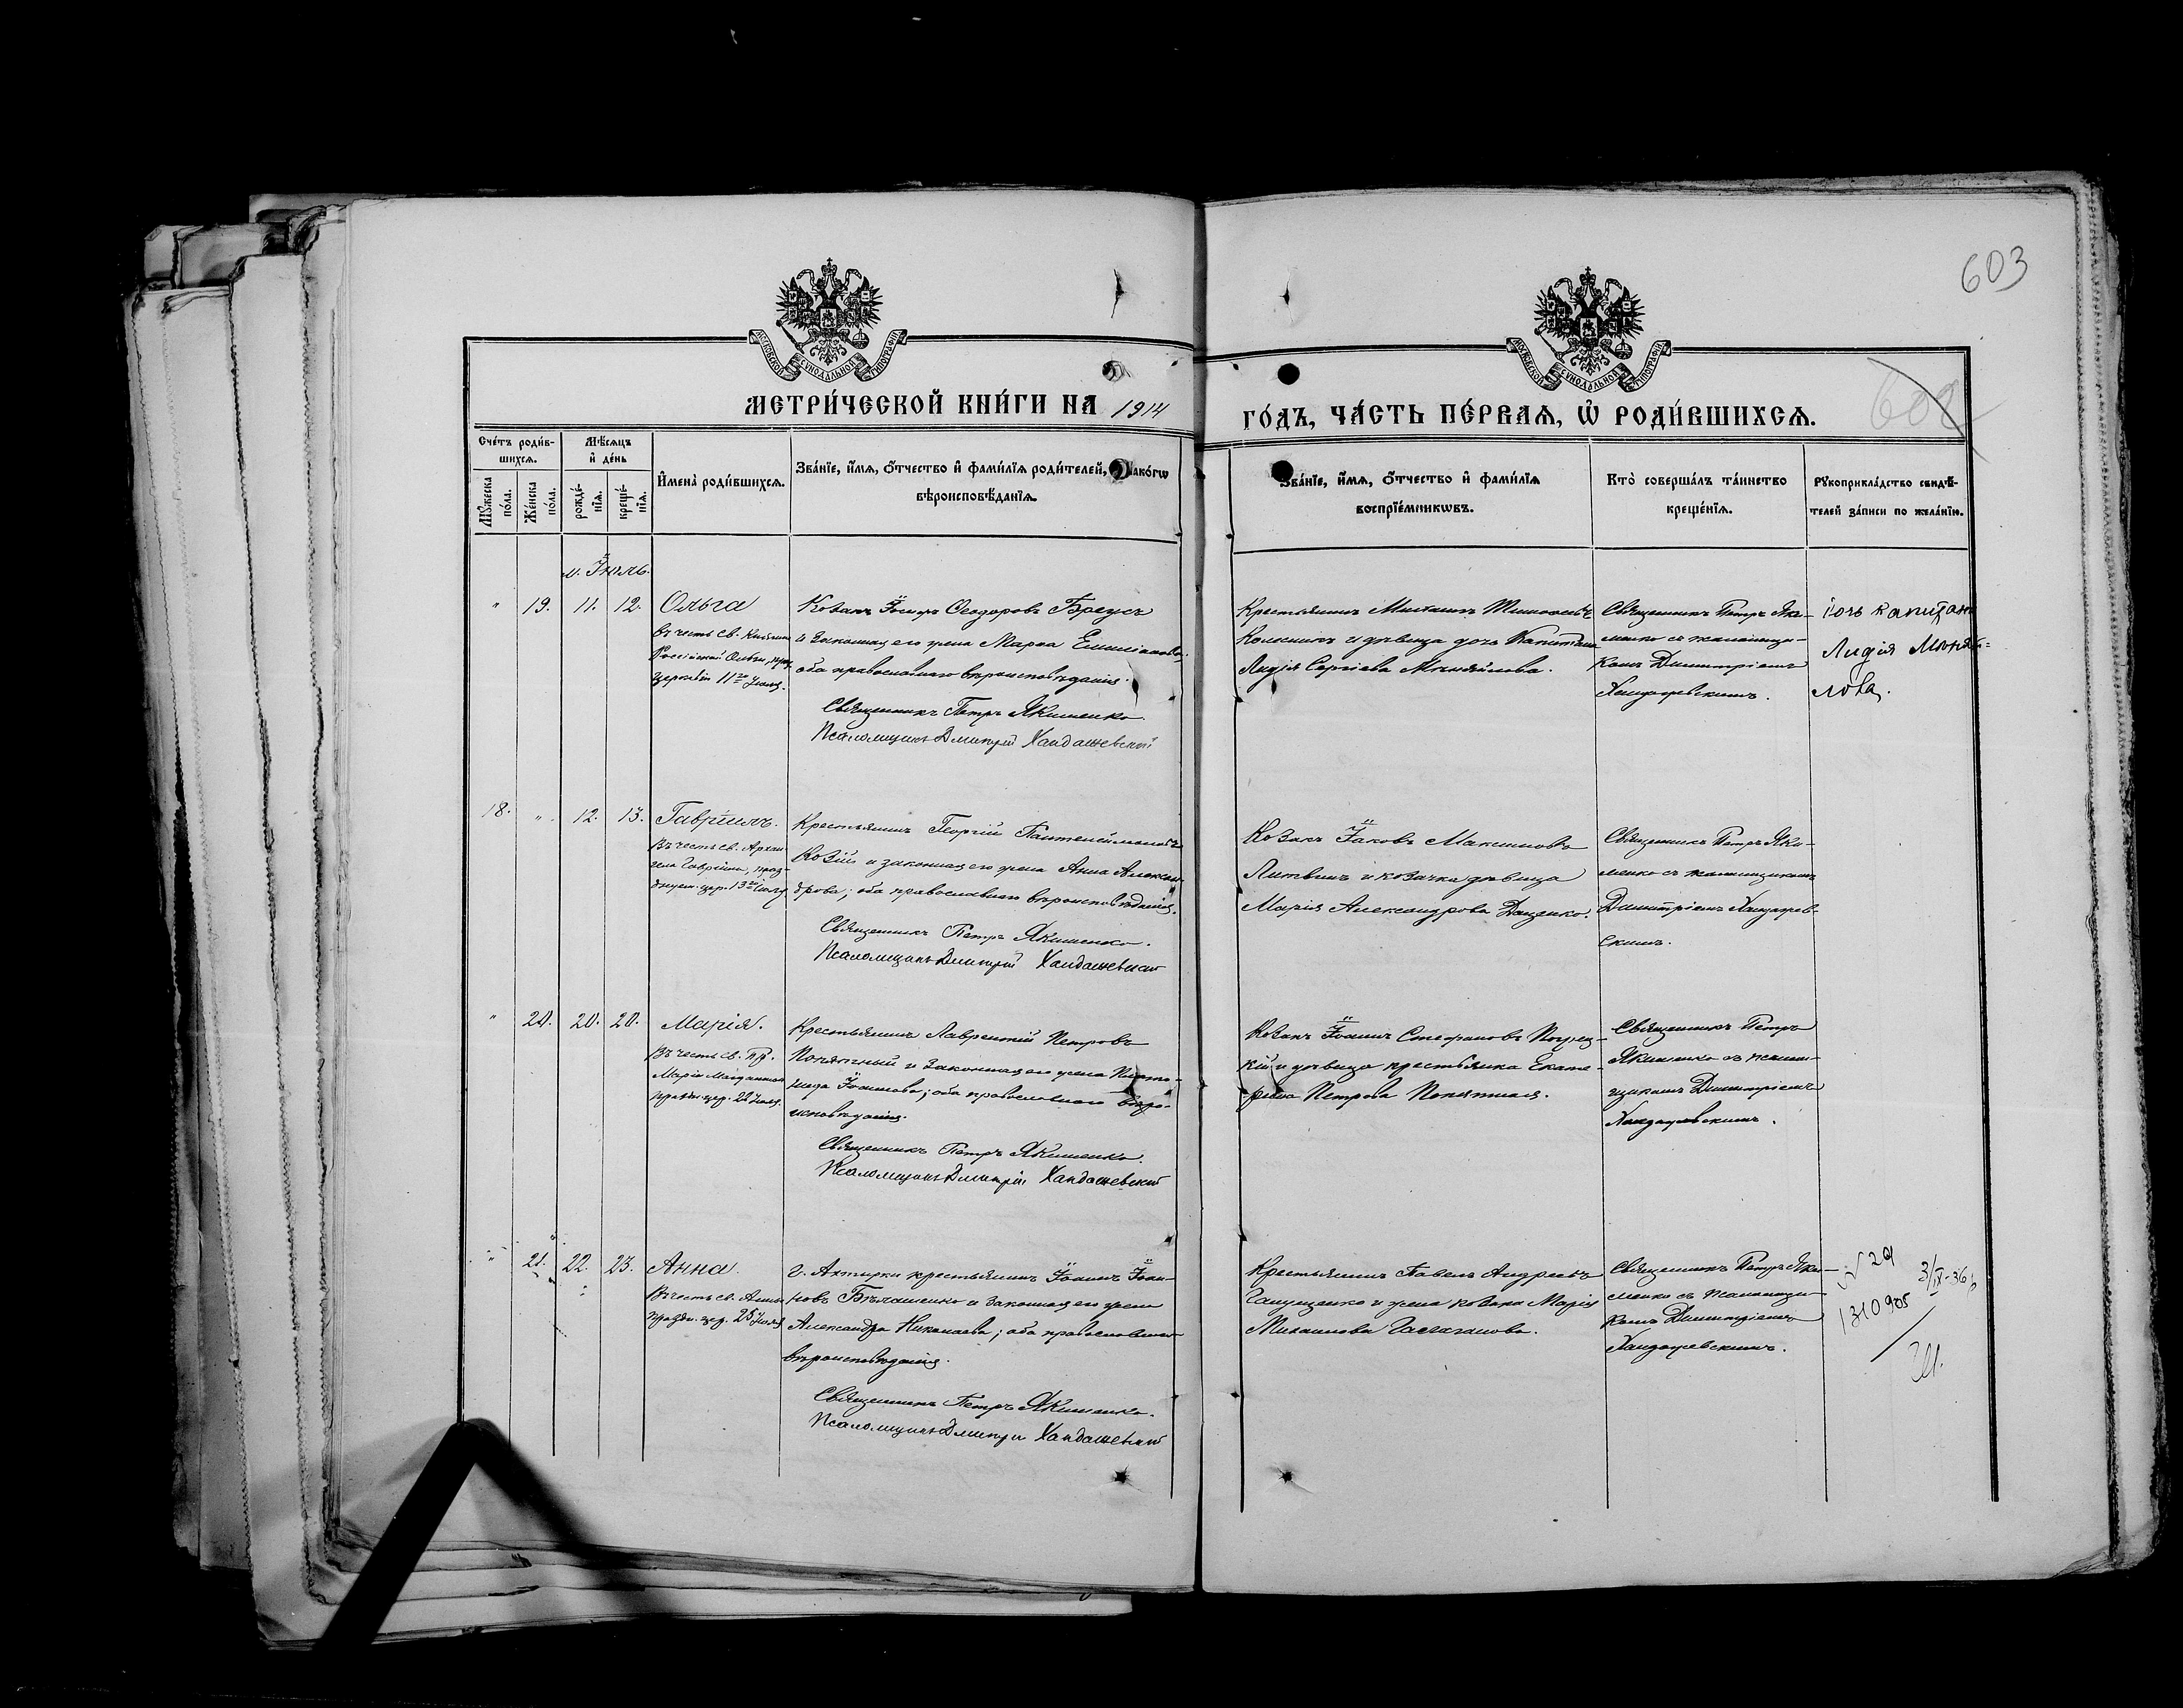 603
МОСКОВСКОЙ СѴНОДАЛЬНОЙ ТИПОГРАФІИ
МОСКОВСКОЙ СѴНОДАЛЬНОЙ ТИПОГРАФІИ
602
МЕТРИ́ЧЕСКОЙ КНИ́ГИ НА 1914
ГО́ДЪ, ЧА́СТЬ ПЕ́РВАѦ, Ѡ҆ РОДИ́ВШИХСѦ.
Сче́тъ роди́в-
шихсѧ.
Мѣ́сѧцъ
и҆ де́нь
Мꙋ́жеска по́ла.
Же́нска по́ла.
рожде́-
нїѧ.
креще́-
нїѧ.
И҆мена̀ роди́вшихсѧ.
Зва́нїе, и҆́мѧ, ѻ҆́тчество и҆ фами́лїѧ роди́телей,
вѣроисповѣ́данїѧ.
Зва́нїе, и҆́мѧ, ѻ҆́тчество и҆ фами́лїѧ
воспрїе́мникѡвъ.
Кто̀ соверша́лъ та́инство
креще́нїѧ.
Рꙋкоприкла́дство свидѣ́-
телей за́писи по жела́нїю.
м. Іюль.
" 19. 11. 12. Ольга
въ честь св.
Россійской Ольги,
церковію 11го Іюля.
Козакъ Іосифъ Ѳеодоровъ Бреусъ
и законная его жена Марѳа Емиліанова;
оба православнаго вѣроисповѣданія.
Священникъ Петръ Якименко.
Псаломщикъ Дмитрій Хандажевскій
Крестьянинъ
Колесникъ и дѣвица дочь Капитана
Лидія Сергіева
Священникъ Петръ Яки-
менко съ псаломщи-
комъ Димитріемъ
Хандажевскимъ.
дочь капитана
Лидія
лова.
18. " 12. 13. Гавріилъ.
Въ честь св. Архан-
гела Гавріила, праз-
днуем. цер. 13го Іюля
Крестьянинъ Георгій Пантелеймоновъ
Козій и законная его жена Анна Алексан-
дрова; оба православнаго вѣроисповѣданія.
Священникъ Петръ Якименко.
Псаломщикъ Дмитрій Хандажевскій
Козакъ Іаковъ Максимовъ
Литвинъ и козачка дѣвица
Марія Александрова Даценко.
Священникъ Петръ Яки-
менко съ псаломщикомъ
Димитріемъ Хандажев-
скимъ.
" 20. 20. 20. Марія.
Въ честь св.
Маріи Магдалины
праздн. цер. 22 Іюля.
Крестьянинъ Лаврентій Петровъ
Понятный и законная его жена
Іоаннова; оба православнаго вѣро-
исповѣданія.
Священникъ Петръ Якименко.
Псаломщикъ Дмитрій Хандажевскій
Козакъ Іоаннъ Стефановъ
кій и дѣвица крестьянка Екате-
рина Петрова Понятная.
Священникъ Петръ
Якименко съ псалом-
щикомъ Димитріемъ
Хандажевскимъ.
" 21. 22. 23. Анна.
Въ честь св. Анны
праздн. цер. 25 Іюля
г. Ахтырки крестьянинъ Іоаннъ Іоан-
новъ Бѣлашенко и законная его жена
Александра Николаева; оба православнаго
вѣроисповѣданія.
Священникъ Петръ Якименко.
Псаломщикъ Дмитрій Хандажевскій
Крестьянинъ Павелъ Андреевъ
и жена козака Марія
Михаилова
Священникъ Петръ Яки-
менко съ псаломщи-
комъ Димитріемъ
Хандажевскимъ.
3/IX-36
1310905